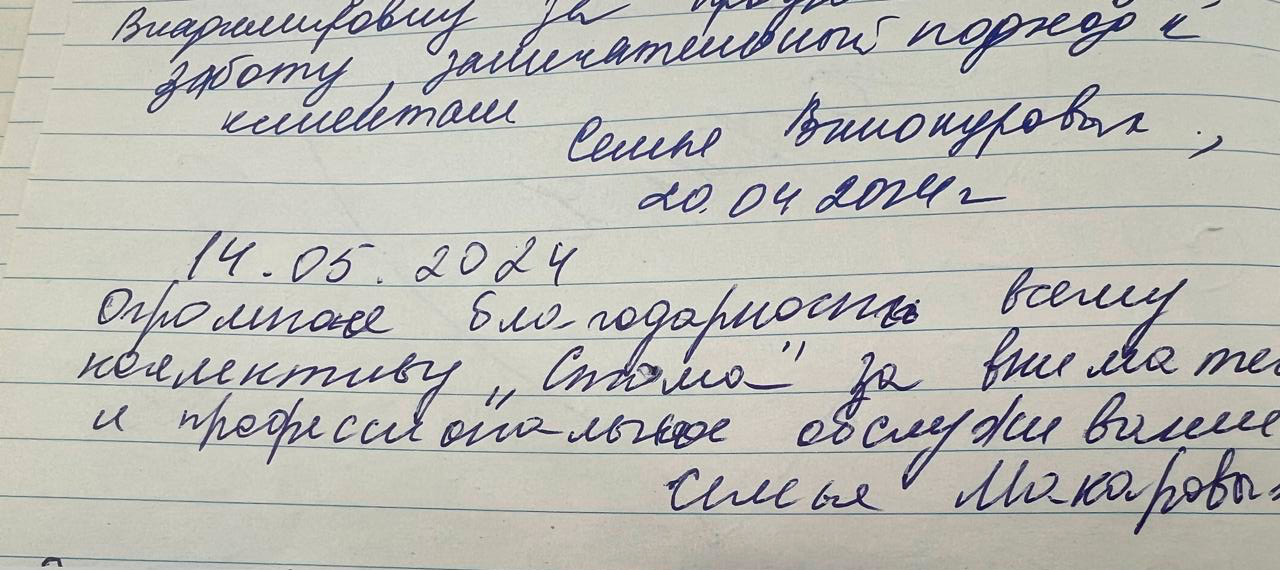 Владимировну за
заботу, замечательный подход к
клиентам
Семья Винокуровых.,
20.04 2024г
14.05.2024
Огромное благодарность всему
коллективу „Стома" за внимате
и профессиональное обслуживание
Семья Макаровы